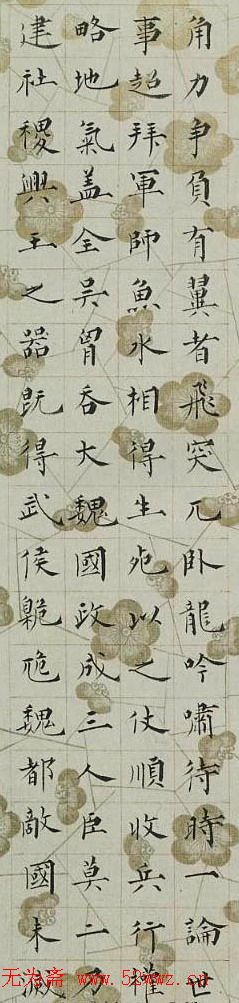 角力争負有翼者飛突兀卧龍吟嘯待時一論世
事超拜軍師魚水相得生死以之仗順收兵行權
略地氣盖全吴胷吞大魏國政成三人臣莫二乃
建社稷興王之器既得武侯臲卼魏都敵國未滅
无为斋 www.52wwz.cn